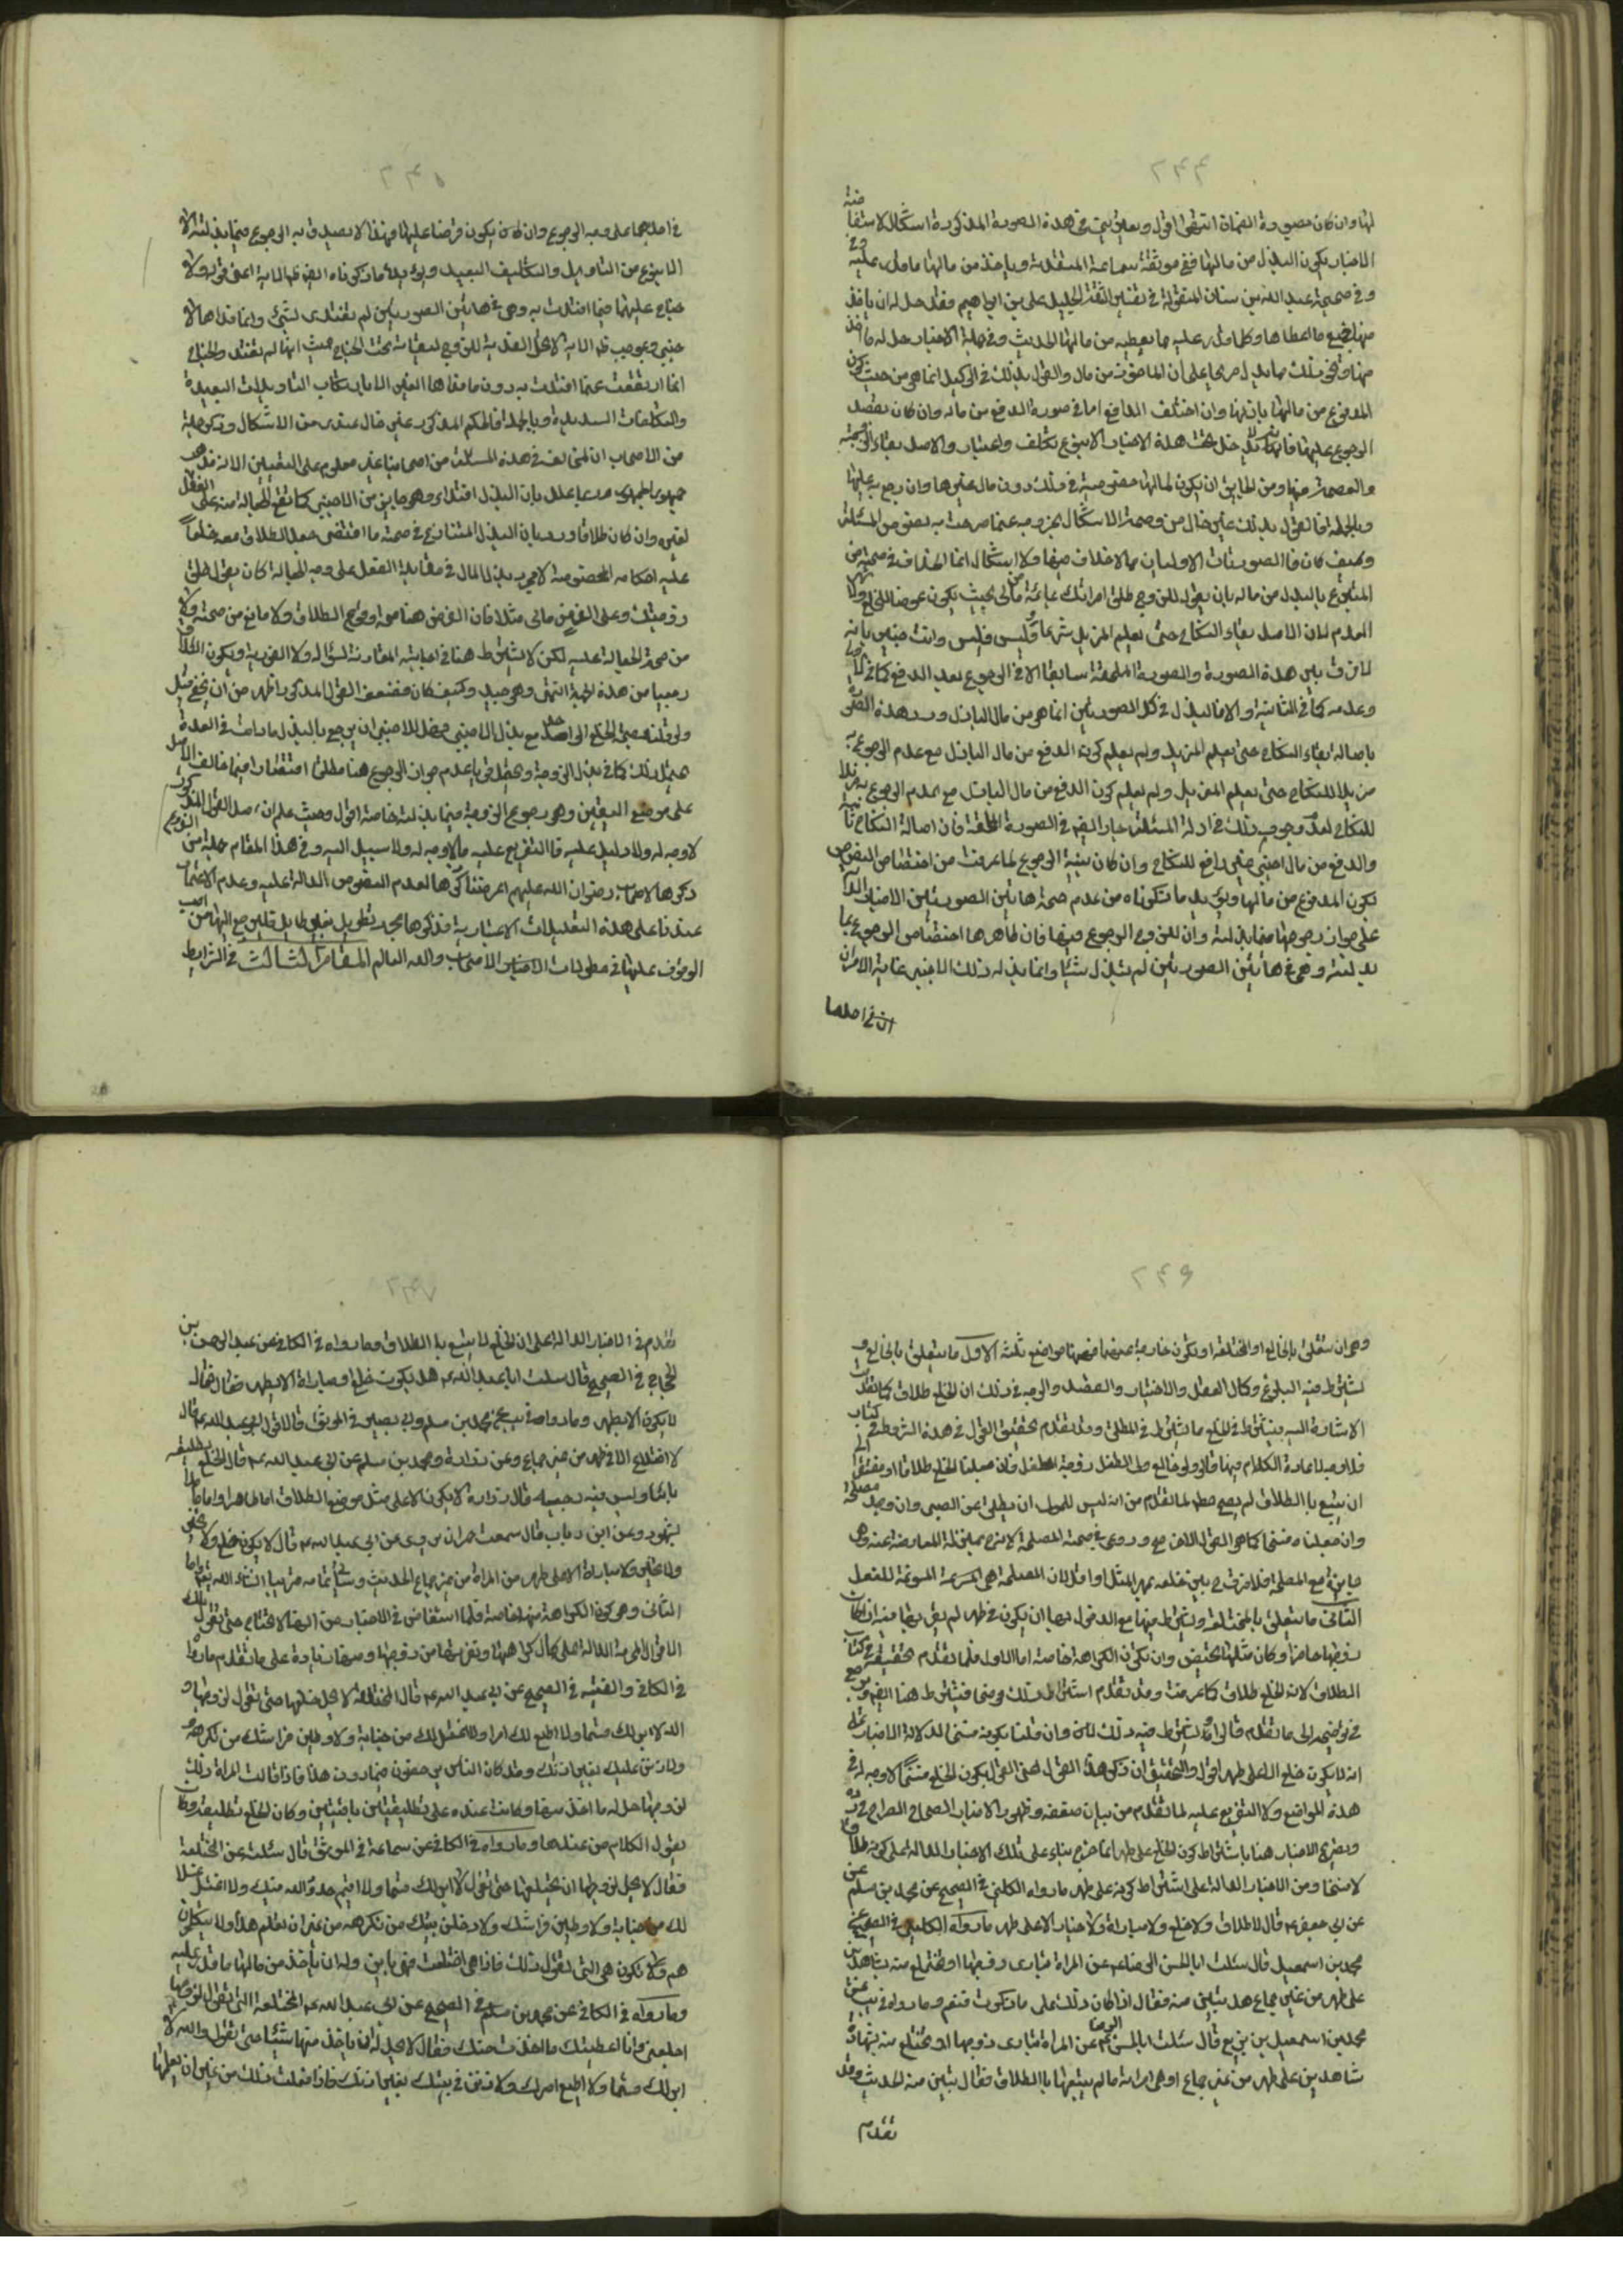 ٢٤٤
لها وان كان بصورة الضمان انتهى اقول وبعد يتجه في هذه الصورة المذكورة اشكال
الاخبار بكون البذل من مالها ففي موثقة سماعة المتقدمة وياخذ من مالها ما قدر عليه
وفي صحيحة عبد الله بن سنان المنقولة في تفسير الثقة الجليل علي بن ابراهيم فقد حل له ان ياخذ
منها جميع ما اعطاها وكل ما قدر عليه مما يعطيه من مالها الحديث وفي جملة الاخبار حل له ما اخذ
المدفوع من مالها وان اختلف الدافع اما في صورة الدفع من ماله وان كان بقصد
الرجوع عليها فانها تدخل تحت هذه الاخبار الا بنوع تكلف واعتبار والاصل بقاء الزوجية
والعصمة
وبالجملة فالقول بذلك غير خال من وصمة الاشكال لخروجه عما صرحت به نصوص المسئلة
وكيف كان فالصورتان الاوليان مما لا خلاف فيها ولا اشكال انما الخلاف في صحته من
المتبرع بالبذل من ماله بان يقول للزوج طلق امراتك بمائة من مالي بحيث يكون عوضا للخلع
العدم لان الاصل بقاء النكاح حتى يعلم المزيل شرعا وليس فليس وانت خبير بانه
لا فرق بين هذه الصورة والصورة الملحقة سابقا الا في الرجوع بعد الدفع كما في
وعدمه كما في الثانية والا فالبذل في كل الصورتين انما هو من مال الباذل ورد هذه الصورة
باصالة بقاء النكاح حتى يعلم المزيل ولم يعلم كون الدفع من مال الباذل مع عدم الرجوع به
مزيلا للنكاح حتى يعلم المزيل ولم يعلم كون الدفع من مال الباذل مع عدم الرجوع به مزيلا
للنكاح لعدم وجود ذلك في ادلة المسئلة جار ايضا في الصورة الملحقة فان اصالة النكاح
والدفع من مال اجنبي غير رافع للنكاح وان كان بنية الرجوع لما عرفت من اختصاص النصوص
بكون المدفوع من مالها ويؤيد ما ذكرناه من عدم صحة هاتين الصورتين الاخبار الدالة
على جواز رجوعها فيما بذلته وان للزوج الرجوع فيها فان ظاهرها اختصاص الرجوع بما
بذلته وهي في هاتين الصورتين لم تبذل شيئا وانما بذله ذلك الاجنبي غاية الامر ان
ان في احدهما
٢٤٥
في احدهما على وجه الرجوع وان كان يكون قرضا عليها وهذا لا يصدق به الرجوع فيما بذلته الا
الا بنوع من التاويل والتكليف البعيد ويؤيد ما ذكرناه ايضا ظاهر الاية اعني قوله ولا
جناح عليهما فيما افتدت به وهي في هاتين الصورتين لم تفتدي بشئ وانما فداها الا
جنبي وبموجب ظاهر الاية لا تحل الفدية للزوج لبقائه تحت الجناح حيث انها لم تفتد والجناح
انما ارتفعت عما افتدت به دون ما فداها الغير الا بارتكاب التاويلات البعيدة
والتكلفات السديدة وبالجملة فالحكم المذكور غير خال عندي من الاشكال وقد ذكر جملة
من الاصحاب ان المخالف في هذه المسئلة من اصحابنا غير معلوم على التعيين الا انه مذهب
جمهور الجمهور
لغيره وان كان طلاقا ورد بان البذل المتنازع في صحته ما اقتضى جعل الطلاق معه خلعا
عليه احكامه المخصوصة لا مجرد بذل المال في مقابلة الفعل على وجه الجعالة كان يقول طلق
زوجتك وعلي الف من مالي مثلا فان الغرض هنا صحة وقوع الطلاق ولا مانع من صحته ولا
من صحة الجعالة عليه لكن لا يشترط هنا في اجابته المقارنة لسؤاله ولا الفورية ويكون الطلاق
رجعيا من هذه الجهة انتهى وهو جيد وكيف كان فضعف القول المذكور اظهر من ان يخفى
ولو قلنا بصحة الخلع الواحد مع بذل الاجنبي فهل للاجنبي ان يرجع بالبذل ما دامت في العدة
يحتمل ذلك كما في بذل الزوجة ويحتمل قويا عدم جواز الرجوع هنا مطلقا اقتصارا فيما خالف الاصل
على موضع اليقين وهو رجوع الزوجة فيما بذلته خاصة اقول وحيث علم ان اصل القول المذكور
لا وجه له ولا دليل عليه فالتفريع عليه مما لا وجه له ولا سبيل اليه وفي هذا المقام جملة من الفروع
ذكرها الاصحاب رضوان الله عليهم اعرضنا عن ذكرها لعدم النصوص الدالة عليه وعدم الاعتماد
عندنا على هذه التعليلات الاعتبارية
الوقوف عليها في مطولات الاصحاب والله العالم المقام الثالث في الشرائط
٢٤٦
وهي ان تتعلق بالخالع او المختلعة او تكون خارجة عنهما فيهما مواضع ثلثة الاول ما يتعلق بالخالع و
يشترط فيه البلوغ وكمال العقل والاختيار والقصد والوجه في ذلك ان الخلع طلاق كما تقدمت
الاشارة اليه فيشترط في الخلع ما يشترط في المطلق وقد تقدم تحقيق القول في هذه الشروط في كتاب
فلا وجه لاعادة الكلام فيها قالوا ولو خالع ولي الطفل زوجة الطفل فان جعلنا الخلع طلاقا او مفتقرا الى
ان يتبع بالطلاق لم يصح مطلقا لما تقدم من انه ليس للولي ان يطلق عن الصبي وان وجد مصلحة
وان جعلناه فسخا كما هو القول الاخر صح وروعي في صحته المصلحة لانه بمنزلة المعاوضة عنه وهي
جايزة مع المصلحة فلا فرق بين خلعه بمهر المثل او اقل لان المصلحة هي المسوغة للفعل
الثاني ما يتعلق بالمختلعة ويشترط فيها مع الدخول بها ان يكون في طهر لم يقربها فيه ان كان
زوجها حاضرا وكان مثلها تحيض وان تكون الكراهة خاصة اما الاول فلما تقدم تحقيقه في كتاب
الطلاق لان الخلع طلاق كما عرفت وقد تقدم اشتراط ذلك فيشترط هنا ايضا
في توضيحه الى ما تقدم قالوا ويشترط فيه ذلك ايضا وان قلنا بكونه فسخا لدلالة الاخبار على
انه لا يكون خلع الا على طهر اقول والتحقيق ان ذكر هذا القول اعني القول بكون الخلع فسخا لا وجه له في
هذه المواضع ولا التفريع عليه لما تقدم من بيان ضعفه وظهور الاخبار الصحاح الصراح في رده
وتصريح الاخبار هنا باشتراط كون الخلع على طهر انما خرج بناء على تلك الاخبار الدالة على كونه طلاقا
لا فسخا ومن الاخبار الدالة على اشتراط كونه على طهر ما رواه الكليني في الصحيح عن محمد بن مسلم
عن ابي جعفر ع قال لا طلاق ولا خلع ولا مباراة ولا خيار الا على طهر ما رواه الكليني في الصحيح عن
محمد بن اسمعيل قال سئلت ابا الحسن الرضا ع عن المراة تبارى زوجها او تختلع منه بشاهدين
على طهر من غير جماع هل تبين منه فقال اذا كان ذلك على ما ذكرت فنعم وما رواه في يب عن
محمد بن اسمعيل بن بزيع قال سئلت ابا الحسن الرضا ع عن المراة تبارى زوجها او تختلع منه بشهادة
شاهدين على طهر من غير جماع او هي امراته ما لم يتبعها بالطلاق فقال تبين منه الحديث وقد
تقدم
٢٤٧
تقدم في الاخبار الدالة على ان الخلع لا يتبع بالطلاق وما رواه في الكافي عن عبد الرحمن بن
الحجاج في الصحيح قال سئلت ابا عبد الله ع هل يكون خلع او مباراة الا بطهر فقال
لا يكون الا بطهر وما رواه في يب عن محمد بن مسلم وابي بصير في الموثق قالا قال ابو عبد الله ع قال
لا اختلاع الا في طهر من غير جماع وعن زرارة ومحمد بن مسلم عن ابي عبد الله ع قال الخلع تطليقة
باينة وليس فيه رجعة قال زرارة لا يكون الا على مثل موضع الطلاق اما طاهرا واما حاملا
بشهود وعن ابن رباب قال سمعت حمران يروي عن ابي عبد الله ع قال لا يكون خلع ولا
ولا تخيير ولا مباراة الا على طهر من المراة من غير جماع الحديث وسياتي تمامه قريبا انشاء الله تعالى واما
الثاني وهو كون الكراهة منها خاصة فلما استفاض في الاخبار من انها لا تختلع حتى تقول تلك
الاقوال المحرمة الدالة على كمال كراهتها ونفرتها من زوجها ومنها زيادة على ما تقدم ما رواه
في الكافي والفقيه في الصحيح عن ابي عبد الله ع قال المختلعة لا يحل خلعها حتى تقول لزوجها و
الله لا ابر لك قسما ولا اطيع لك امرا ولا اغتسل لك من جنابة ولاوطين فراشك من تكرهه
ولاوذنن عليك بغير اذنك وقد كان الناس يرخصون فيما دون هذا فاذا قالت المراة ذلك
لزوجها حل له ما اخذ منها وكانت عنده على تطليقتين باقيتين وكان الخلع تطليقة وكان
يقول الكلام من عندها وما رواه في الكافي عن سماعة في الموثق قال سئلت عن المختلعة
فقال لا يحل لزوجها ان يختلعها حتى تقول لا ابر لك قسما ولا اقيم حدود الله فيك ولا اغتسل
لك من جنابة ولاوطين فراشك ولادخلن بيتك من تكرهه من غير ان تعلم هذا ولا يتكلمون
هم وتكون هي التي تقول ذلك فاذا هي اختلعت فهي باين وله ان ياخذ من مالها ما قدر عليه
وما رواه في الكافي عن محمد بن مسلم في الصحيح عن ابي عبد الله ع المختلعة التي تقول لزوجها
اخلعني وانا اعطيتك ما اخذت منك فقال لا يحل له ان ياخذ منها شيئا حتى تقول والله لا
ابر لك قسما ولا اطيع امرك ولاوذنن في بيتك بغير اذنك فاذا فعلت ذلك من غير ان يعلمها